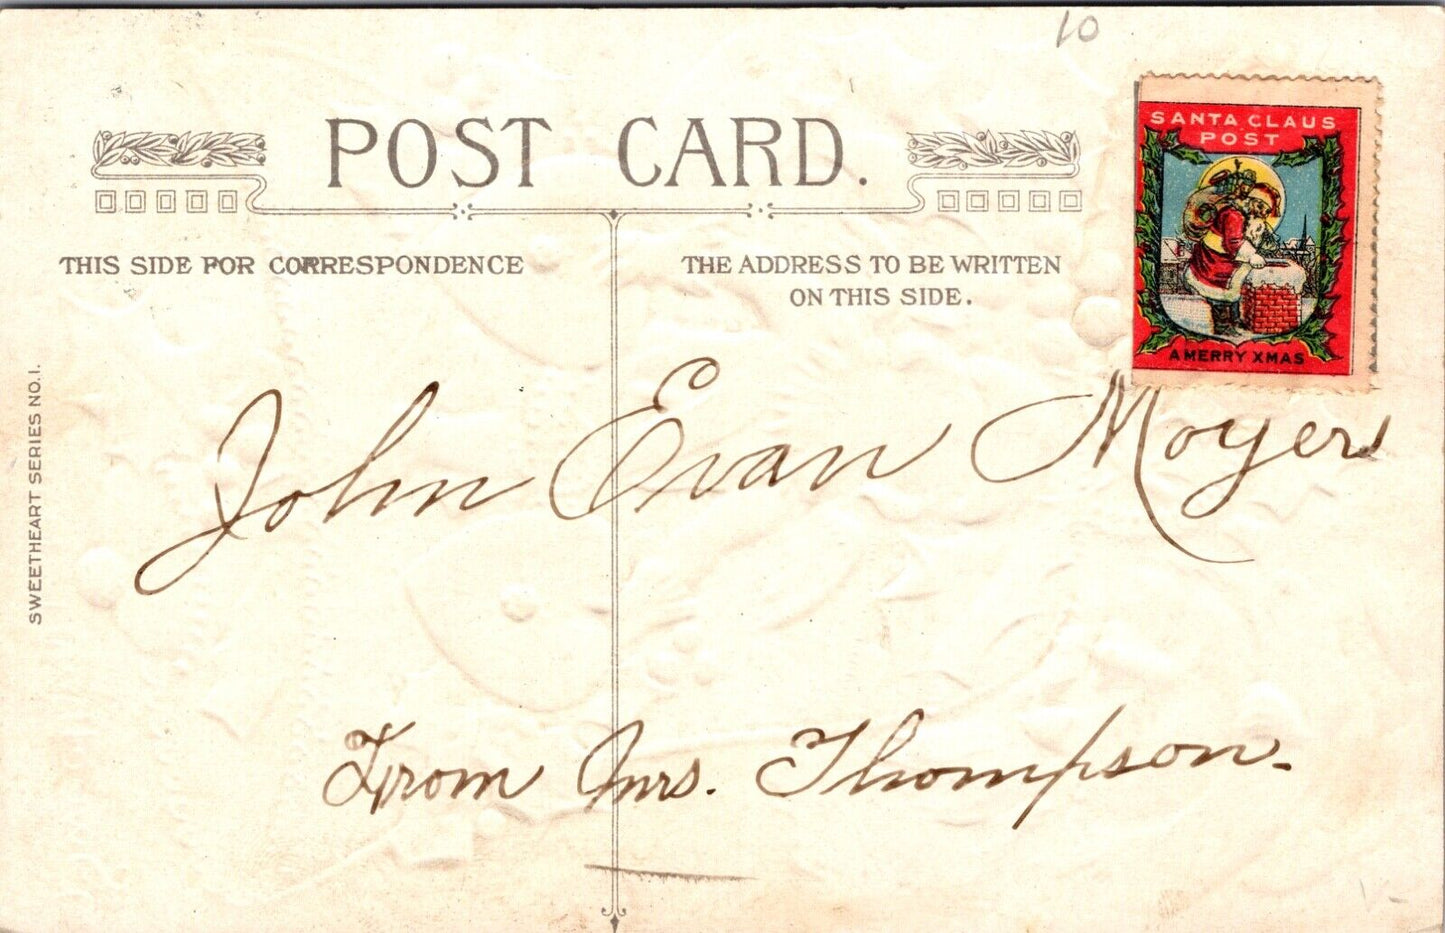 10
SANTA CLAUS
POST
A MERRY XMAS
POST CARD.
THIS SIDE FOR CORRESPONDENCE
THE ADDRESS TO BE WRITTEN
ON THIS SIDE.
SWEETHEART SERIES NO. 1.
John Evan Moyer
From Mrs. Thompson.